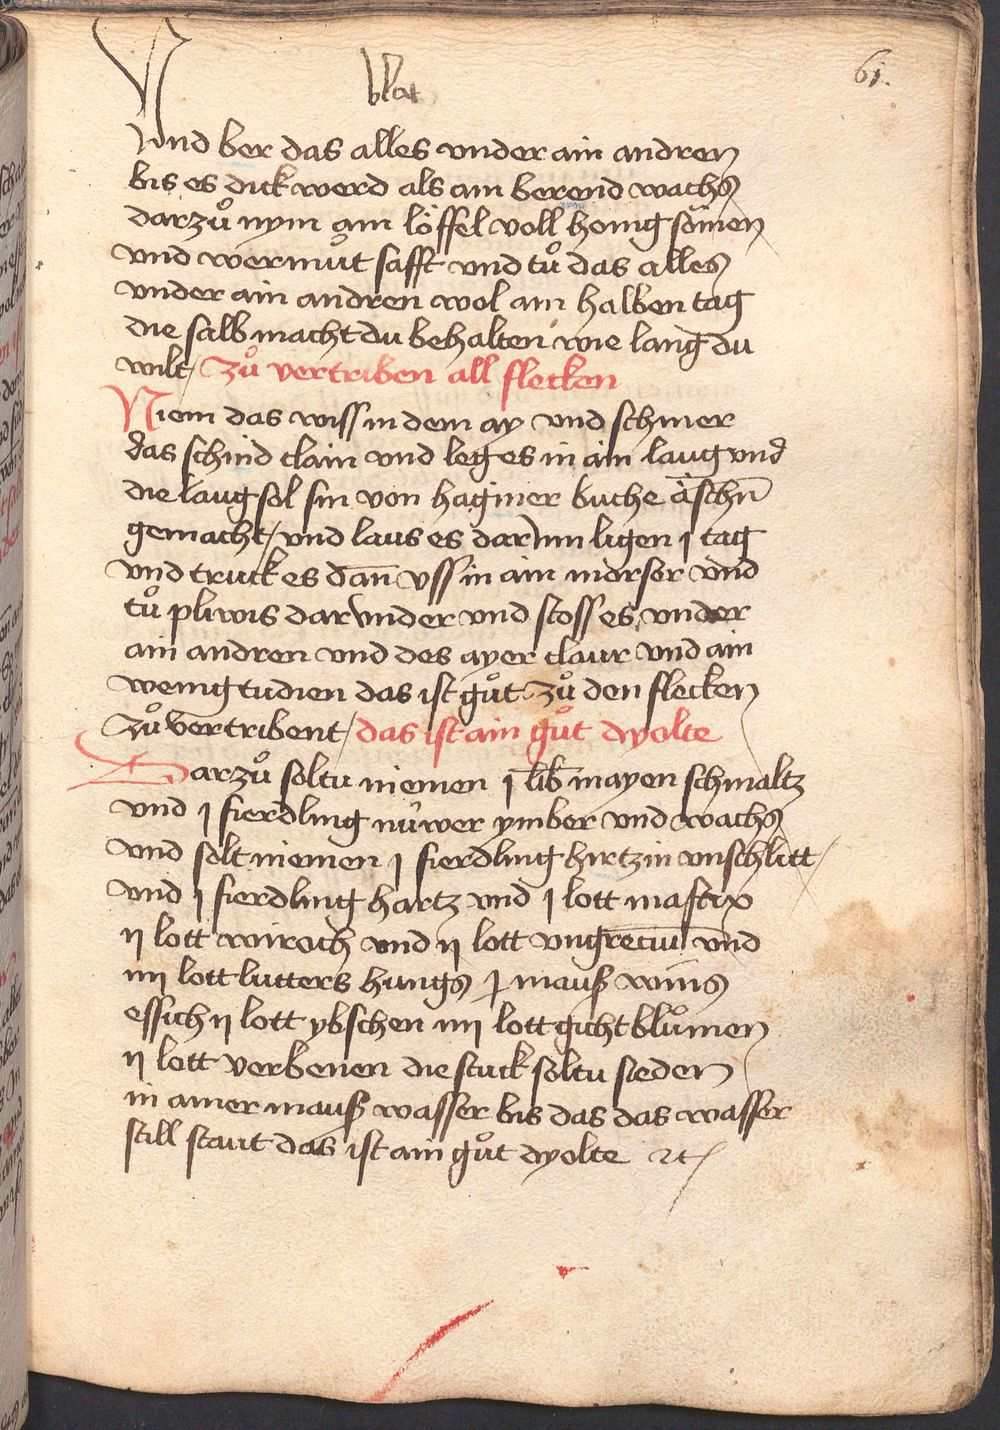 blat
61.
Vnd ber das alles vnder ain andren
bis es dick werd als ain berend wachs
darzuͦ nym ain löffel voll honig sömen
vnd wermuͦt safft vnd tuͦ das alles
vnder ain andren wol ain halben tag
die salb macht du behalten wie lang du
wilt / Zuͦ vertriben all flecken
Niem das wiss in dem ay vnd schmer
das schind clain vnd leg es in ain laug vnd
die laug sol sin von haginer buche äschn̄
gemacht / vnd laus es dar Inn ligen j tag
vnd truck es dan̄ vss in ain morser vnd
tuͦ pliwis dar vnder vnd stoss es vnder
ain andren vnd des ayer claur vnd ain
wenig tudien das ist guͦt zuͦ den flecken
zuͦ vertribent / das ist ain guͦt dyolte
Darzuͦ soltu niemen j lib mayen schmaltz
vnd j fierdling nuͦwer ymber vnd wachs
vnd solt niemen j fierdling hirtzin vnschlitt /
vnd j fierdling hartz vnd j lott mastix
ij lott wiroch vnd ij lott vngrecum vnd
iiij lott lutters hungs j mauß wins
essich ij lott ybschen iiij lott gicht bluͦmen
ij lott verbenen die stuck soltu sieden
in ainer mauß wasser bis das das wasser
still staut das ist ain guͦt dyolte ꝛc /